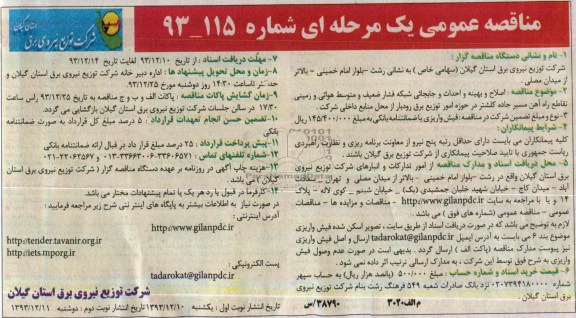 مناقصه عمومی یک مرحله ای شماره ۱۱۵_۹۳
استان گیلان
شرکت توزیع نیروی برق
۱- نام و نشانی دستگاه مناقصه گزار :
شرکت توزیع نیروی برق استان گیلان (سهامی خاص) به نشانی رشت -بلوار امام خمینی - بالاتر
از میدان مصلی.
۲- موضوع مناقصه : اصلاح و بهینه و احداث و جابجائی شبکه فشار ضعیف و متوسط هوائی و زمینی
تقاطع راه آهن مسیر جاده کلشتر در حوزه امور توزیع برق رودبار از محل منابع داخلی شرکت
۳- نوع و مبلغ تضمین شرکت در مناقصه : فیش واریزی یا ضمانتنامه بانکی به مبلغ ۱۴۵/۴۰۰/۰۰۰ ریال
۴- شرایط پیمانکاران :
کلیه پیمانکاران می بایست دارای حداقل رتبه پنج نیرو از معاونت برنامه ریزی و نظارت راهبردی
ریاست جمهوری با تایید صلاحیت پیمانکاری از شرکت توزیع برق گیلان باشند.
۵- محل دریافت اسناد و مدارک مناقصه : از امور تدارکات و انبارهای شرکت توزیع نیروی
برق استان گیلان واقع در رشت -بلوار امام خمینی - بالاتر از میدان مصلی و تهران - سعادت
آباد - میدان کاج - خیابان شهید خلیان جمشیدی (یک) - خیابان شبنم - کوی لاله - پلاک
۱۴ و یا با مراجعه به سایت http://www.gilanpdc.ir - مناقصات و مزایده ها - مناقصات
عمومی - مناقصه عمومی (شماره های فوق ) می باشد .
لازم به توضیح می باشد که در صورت دریافت اسناد از طریق سایت ، تصویر اسکن شده فیش واریزی
موضوع بند ۶ می بایست به آدرس ایمیل tadarokat@gilanpdc.ir ارسال و اصل فیش واریزی
نیز پیوست مدارک مناقصه (پاکت الف ) ارسال گردد . بدیهی است در صورت عدم وصول فیش
واریزی به شرح فوق توسط این شرکت ، به مدارک ارسالی ترتیب اثر داده نمی شود .
۶- قیمت خرید اسناد و شماره حساب : مبلغ ۵۰۰/۰۰۰ (پانصد هزار ریال) به حساب سپهر
۰۲۰۷۳۹۴۱۸۰۰۰۰ نزد بانک صادرات شعبه ۵۴۹ فرهنگ رشت بنام شرکت توزیع نیروی
برق استان گیلان .
۷- مهلت دریافت اسناد : از تاریخ ۹۳/۱۲/۱۰ لغایت تاریخ ۹۳/۱۲/۱۴
۸- زمان و محل تحویل پیشنهاد ها : اداره دبیر خانه شرکت توزیع نیروی برق استان گیلان و
حداکثر تاساعت ۱۴:۳۰ روز دوشنبه مورخ ۹۳/۱۲/۲۵
۹- زمان گشایش پاکات مناقصه : پاکات الف و ب و ج مناقصه به تاریخ ۹۳/۱۲/۲۵ راس ساعت
۱۷:۳۰ در سالن جلسات شرکت توزیع نیروی برق استان گیلان بازگشایی می گردد.
۱۰- تضمین حسن انجام تعهدات قرارداد : ۵ درصد مبلغ کل قرارداد به صورت ضمانتنامه
بانکی
۱۱- پیش پرداخت قرارداد : ۲۵ درصد مبلغ قرار داد در قبال ارائه ضمانتنامه بانکی
۱۲- شماره تلفنهای تماس : ۳۳۶۰۶۵۷۱-۰۱۳-۳۳۳۶۶۳۰۶ ۰۲۱-۲۲۰۶۲۵۶۷
۱۳- هزینه چاپ آگهی در روزنامه بر عهده دستگاه مناقصه گزار ( شرکت توزیع نیروی برق استان
گیلان ) می باشد .
۱۴- کارفرما در قبول یا رد هر یک یا تمام پیشنهادات مختار می باشد
در صورت نیاز به اطلاعات بیشتر به پایگاه های اینترنتی شرح زیر مراجعه فرمایید :
آدرس اینترنتی :
http://www.gilanpdc.ir
http://tender.tavanir.org.ir
http://iets.mporg.ir
پست الکترونیکی :
tadarokat@gilanpdc.ir
شرکت توزیع نیروی برق استان گیلان
م الف ۳۰۲۰
۳۸۷۹۰/س
تاریخ انتشار نوبت اول : یکشنبه ۱۳۹۳/۱۲/۱۰ تاریخ انتشار نوبت دوم : دوشنبه ۱۳۹۳/۱۲/۱۱